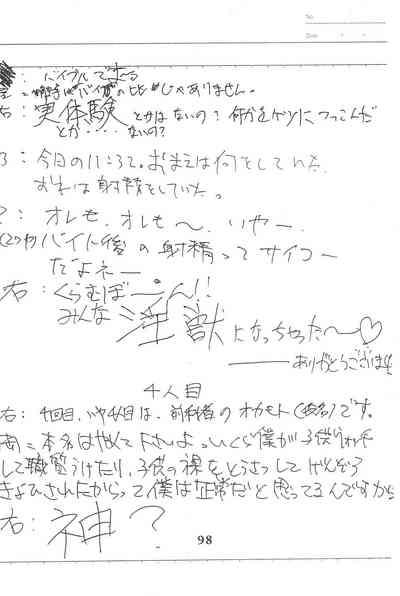 No.
Date
：バイブルで
バイブの比 じゃありません。
右：実体験とかはないの？何かをケツにつっこんだ
とか・・・・ないの？
3：今日の11:32。おまえは何をしていた。
おれは射精をしていた。
？：オレも、オレも〜。いやー、
バイト後の射精ってサイコー
だよネー
右：くらむぼーん!!
みんな淫獣になっちゃった〜♡
――ありがとうございます
4人目
右：4回目、いや4人目は、前科者のオカモト(仮名)です。
本名はやめて下さいよっ。いくら僕が子供
して職質うけたり、子供の裸をとうさつして げんぞう
きょひされたからって僕は正常だと思ってるんですから
右：神？
98